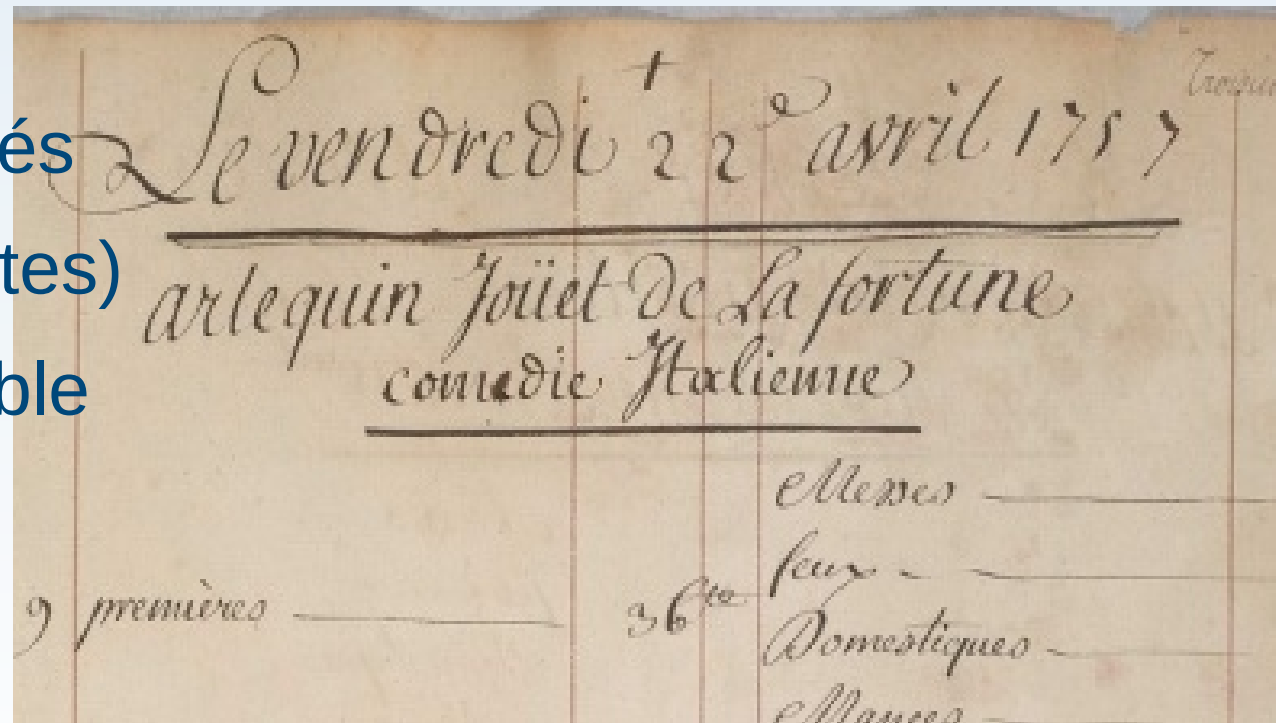 és
tes)
ble
Le vendredi 22e avril 1757
arlequin Joüet De La fortune
comedie Italienne
Messes
feux
9 premières 36
Domestiques